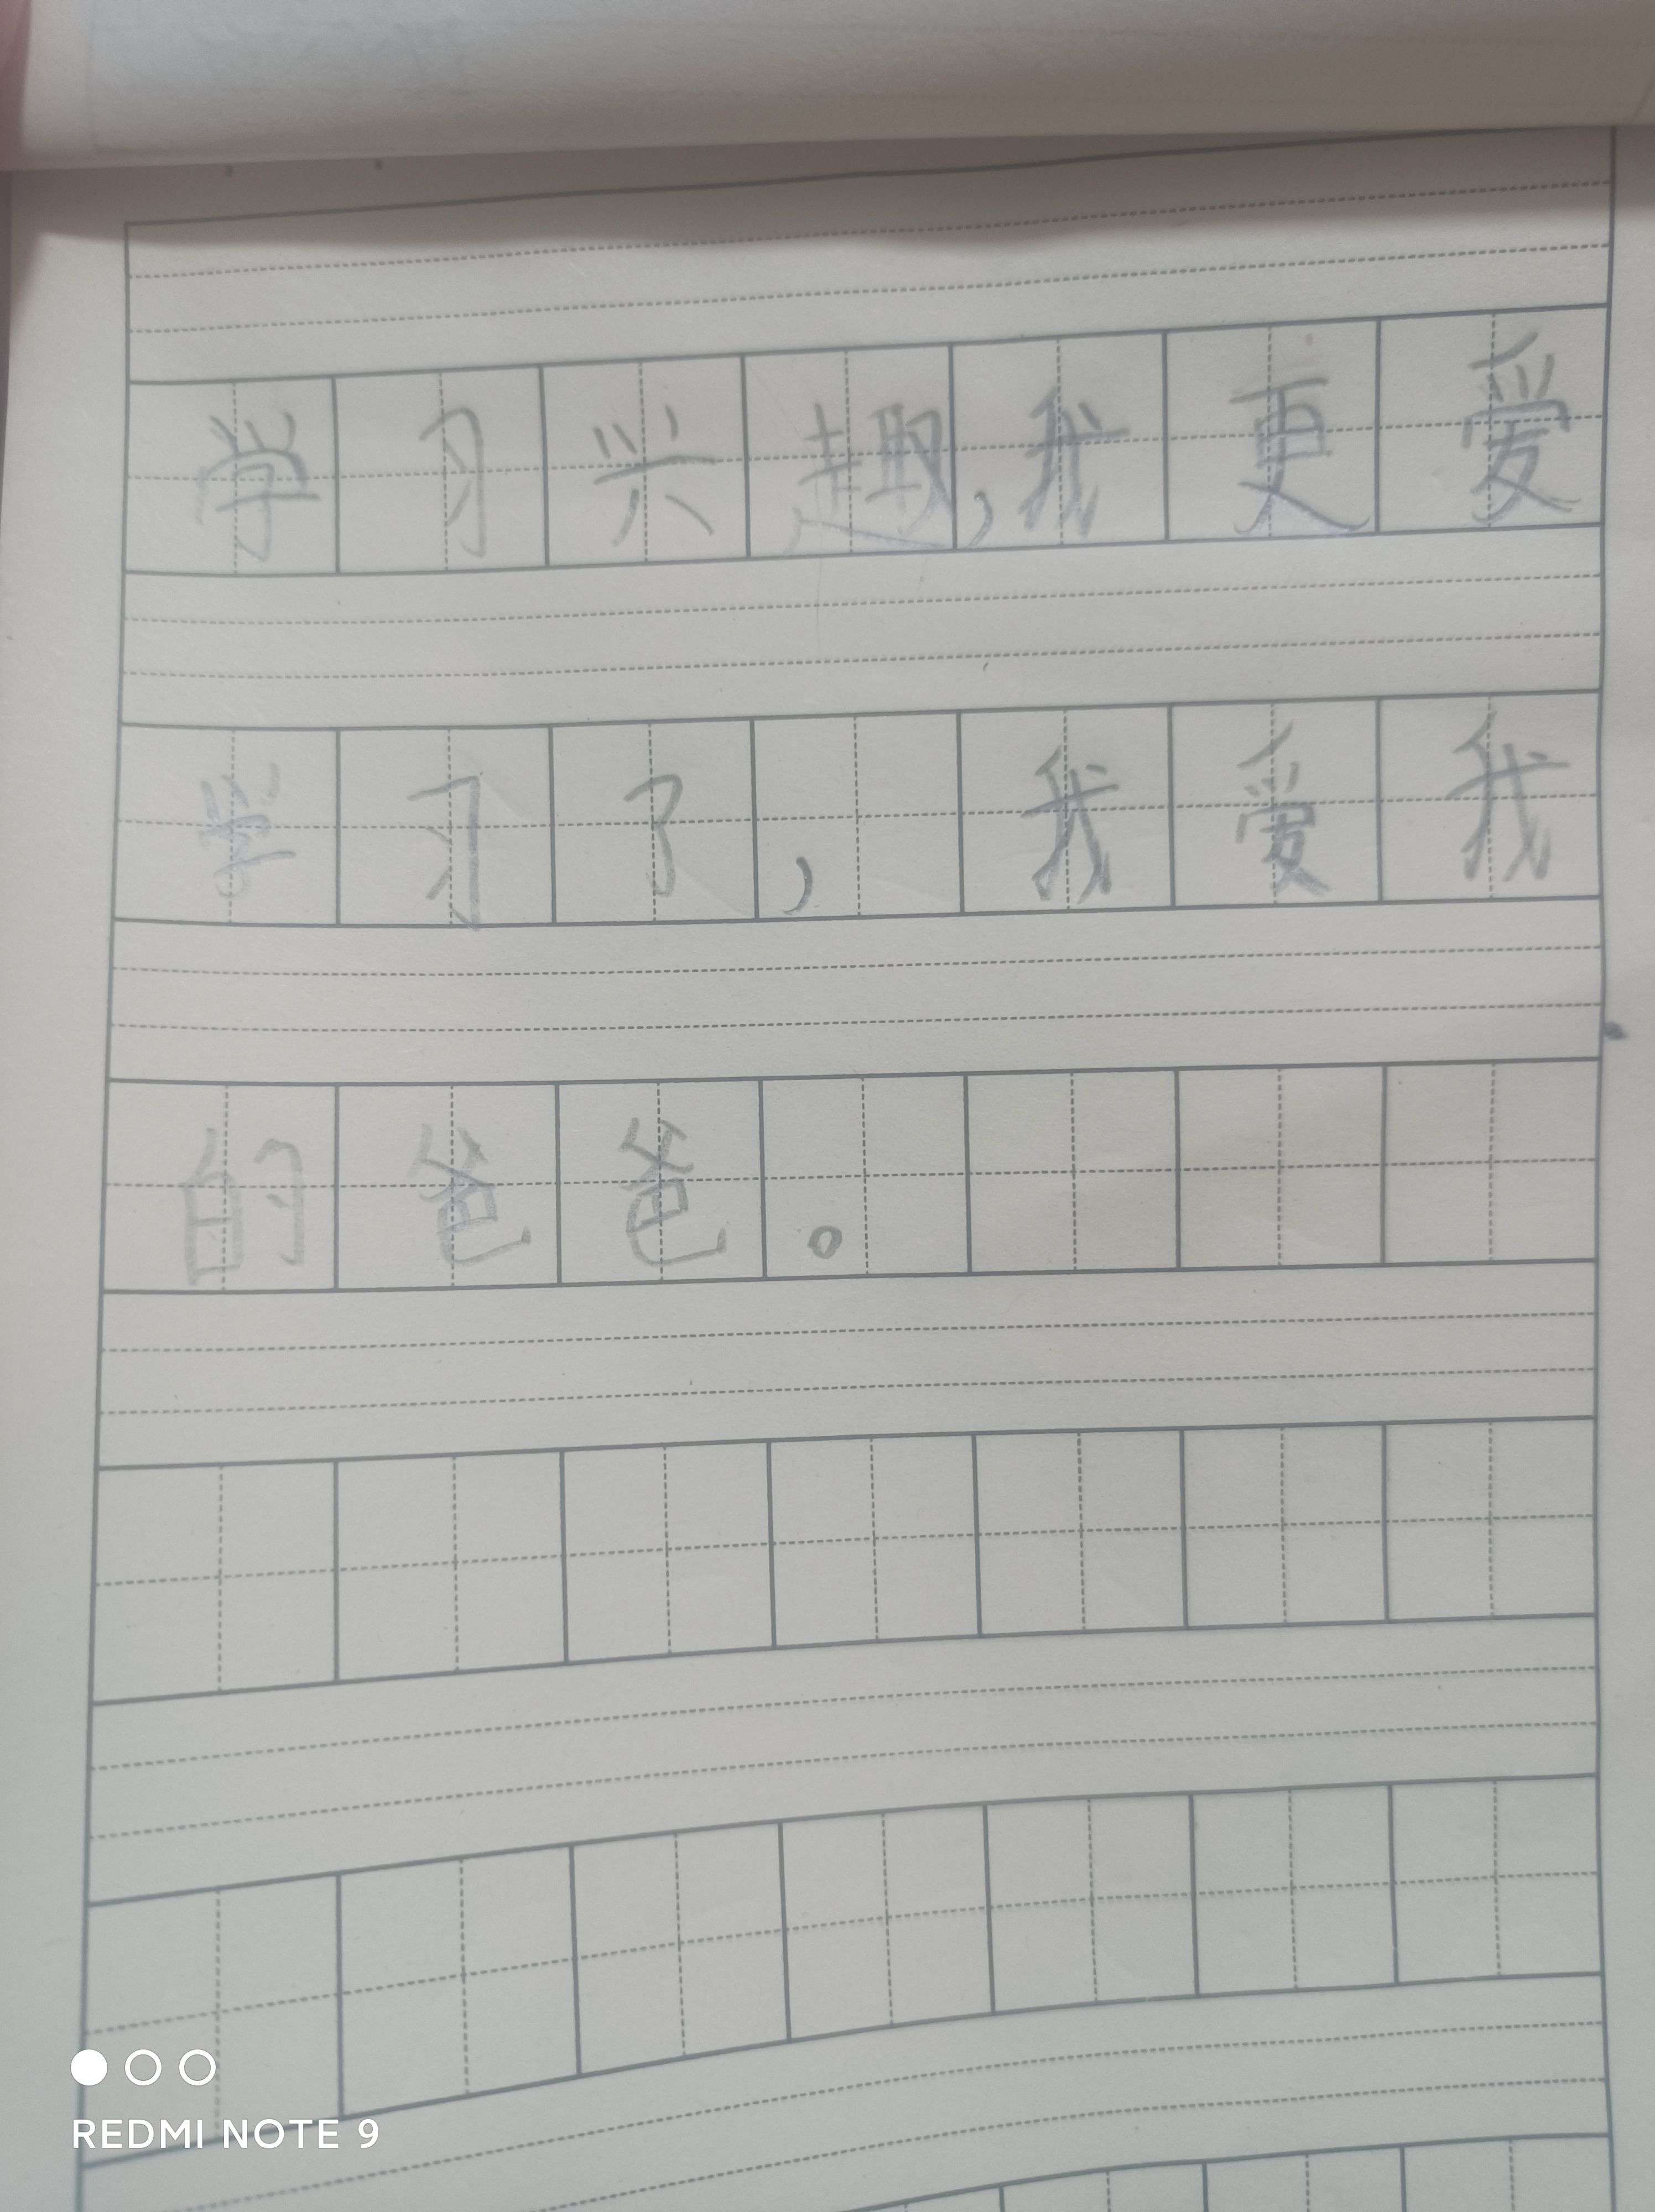 学习兴趣,我更爱
学习了,我爱我
的爸爸。
REDMI NOTE 9